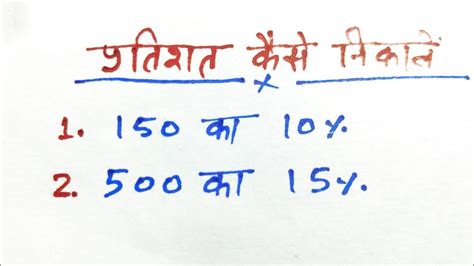 प्रतिशत कैसे निकालें
1. 150 का 10%.
2. 500 का 15%.